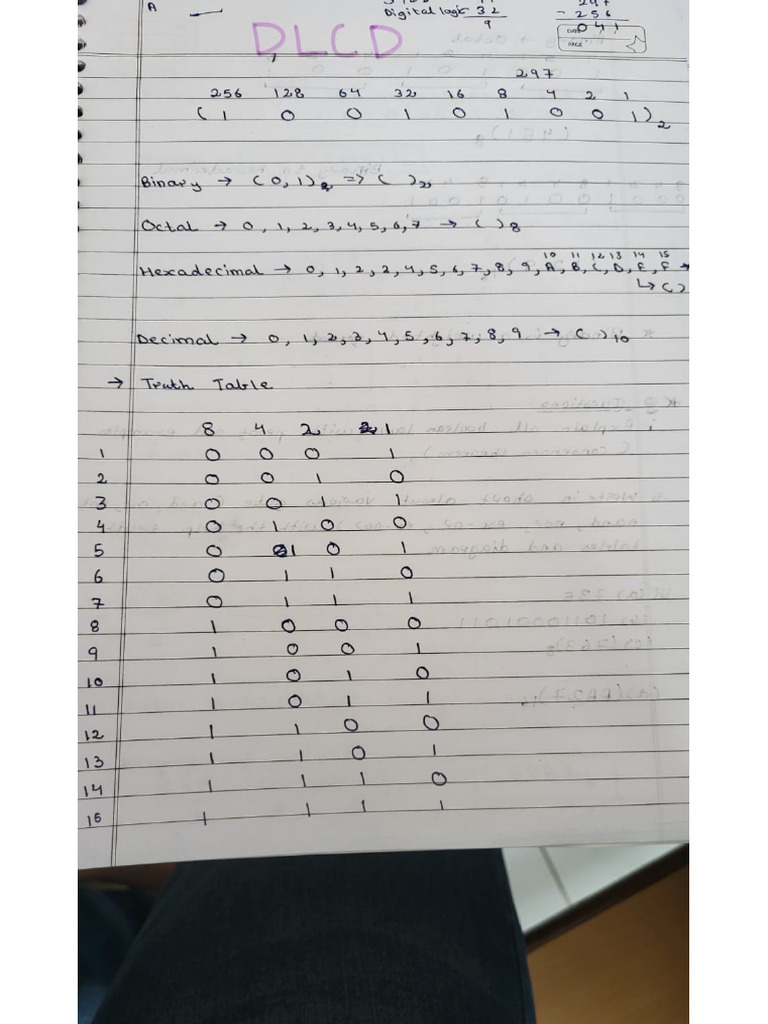 A
Digital logic 32
9
297
- 256
041
DATE
PAGE
DLCD
297
256 128 64 32 16 8 4 2 1
(1 0 0 1 0 1 0 0 1)2
Binary → (0,1)2 => ( )2
Octal → 0, 1, 2, 3, 4, 5, 6, 7 → ( )8
10 11 12 13 14 15
Hexadecimal → 0, 1, 2, 2, 4, 5, 6, 7, 8, 9, A, B, C, D, E, F →
↳ ( )
Decimal → 0, 1, 2, 3, 4, 5, 6, 7, 8, 9 → ( )10
→ Truth Table
8 4 2 1
1 0 0 0 1
2 0 0 1 0
3 0 0 1 1
4 0 1 0 0
5 0 1 0 1
6 0 1 1 0
7 0 1 1 1
8 1 0 0 0
9 1 0 0 1
10 1 0 1 0
11 1 0 1 1
12 1 1 0 0
13 1 1 0 1
14 1 1 1 0
15 1 1 1 1